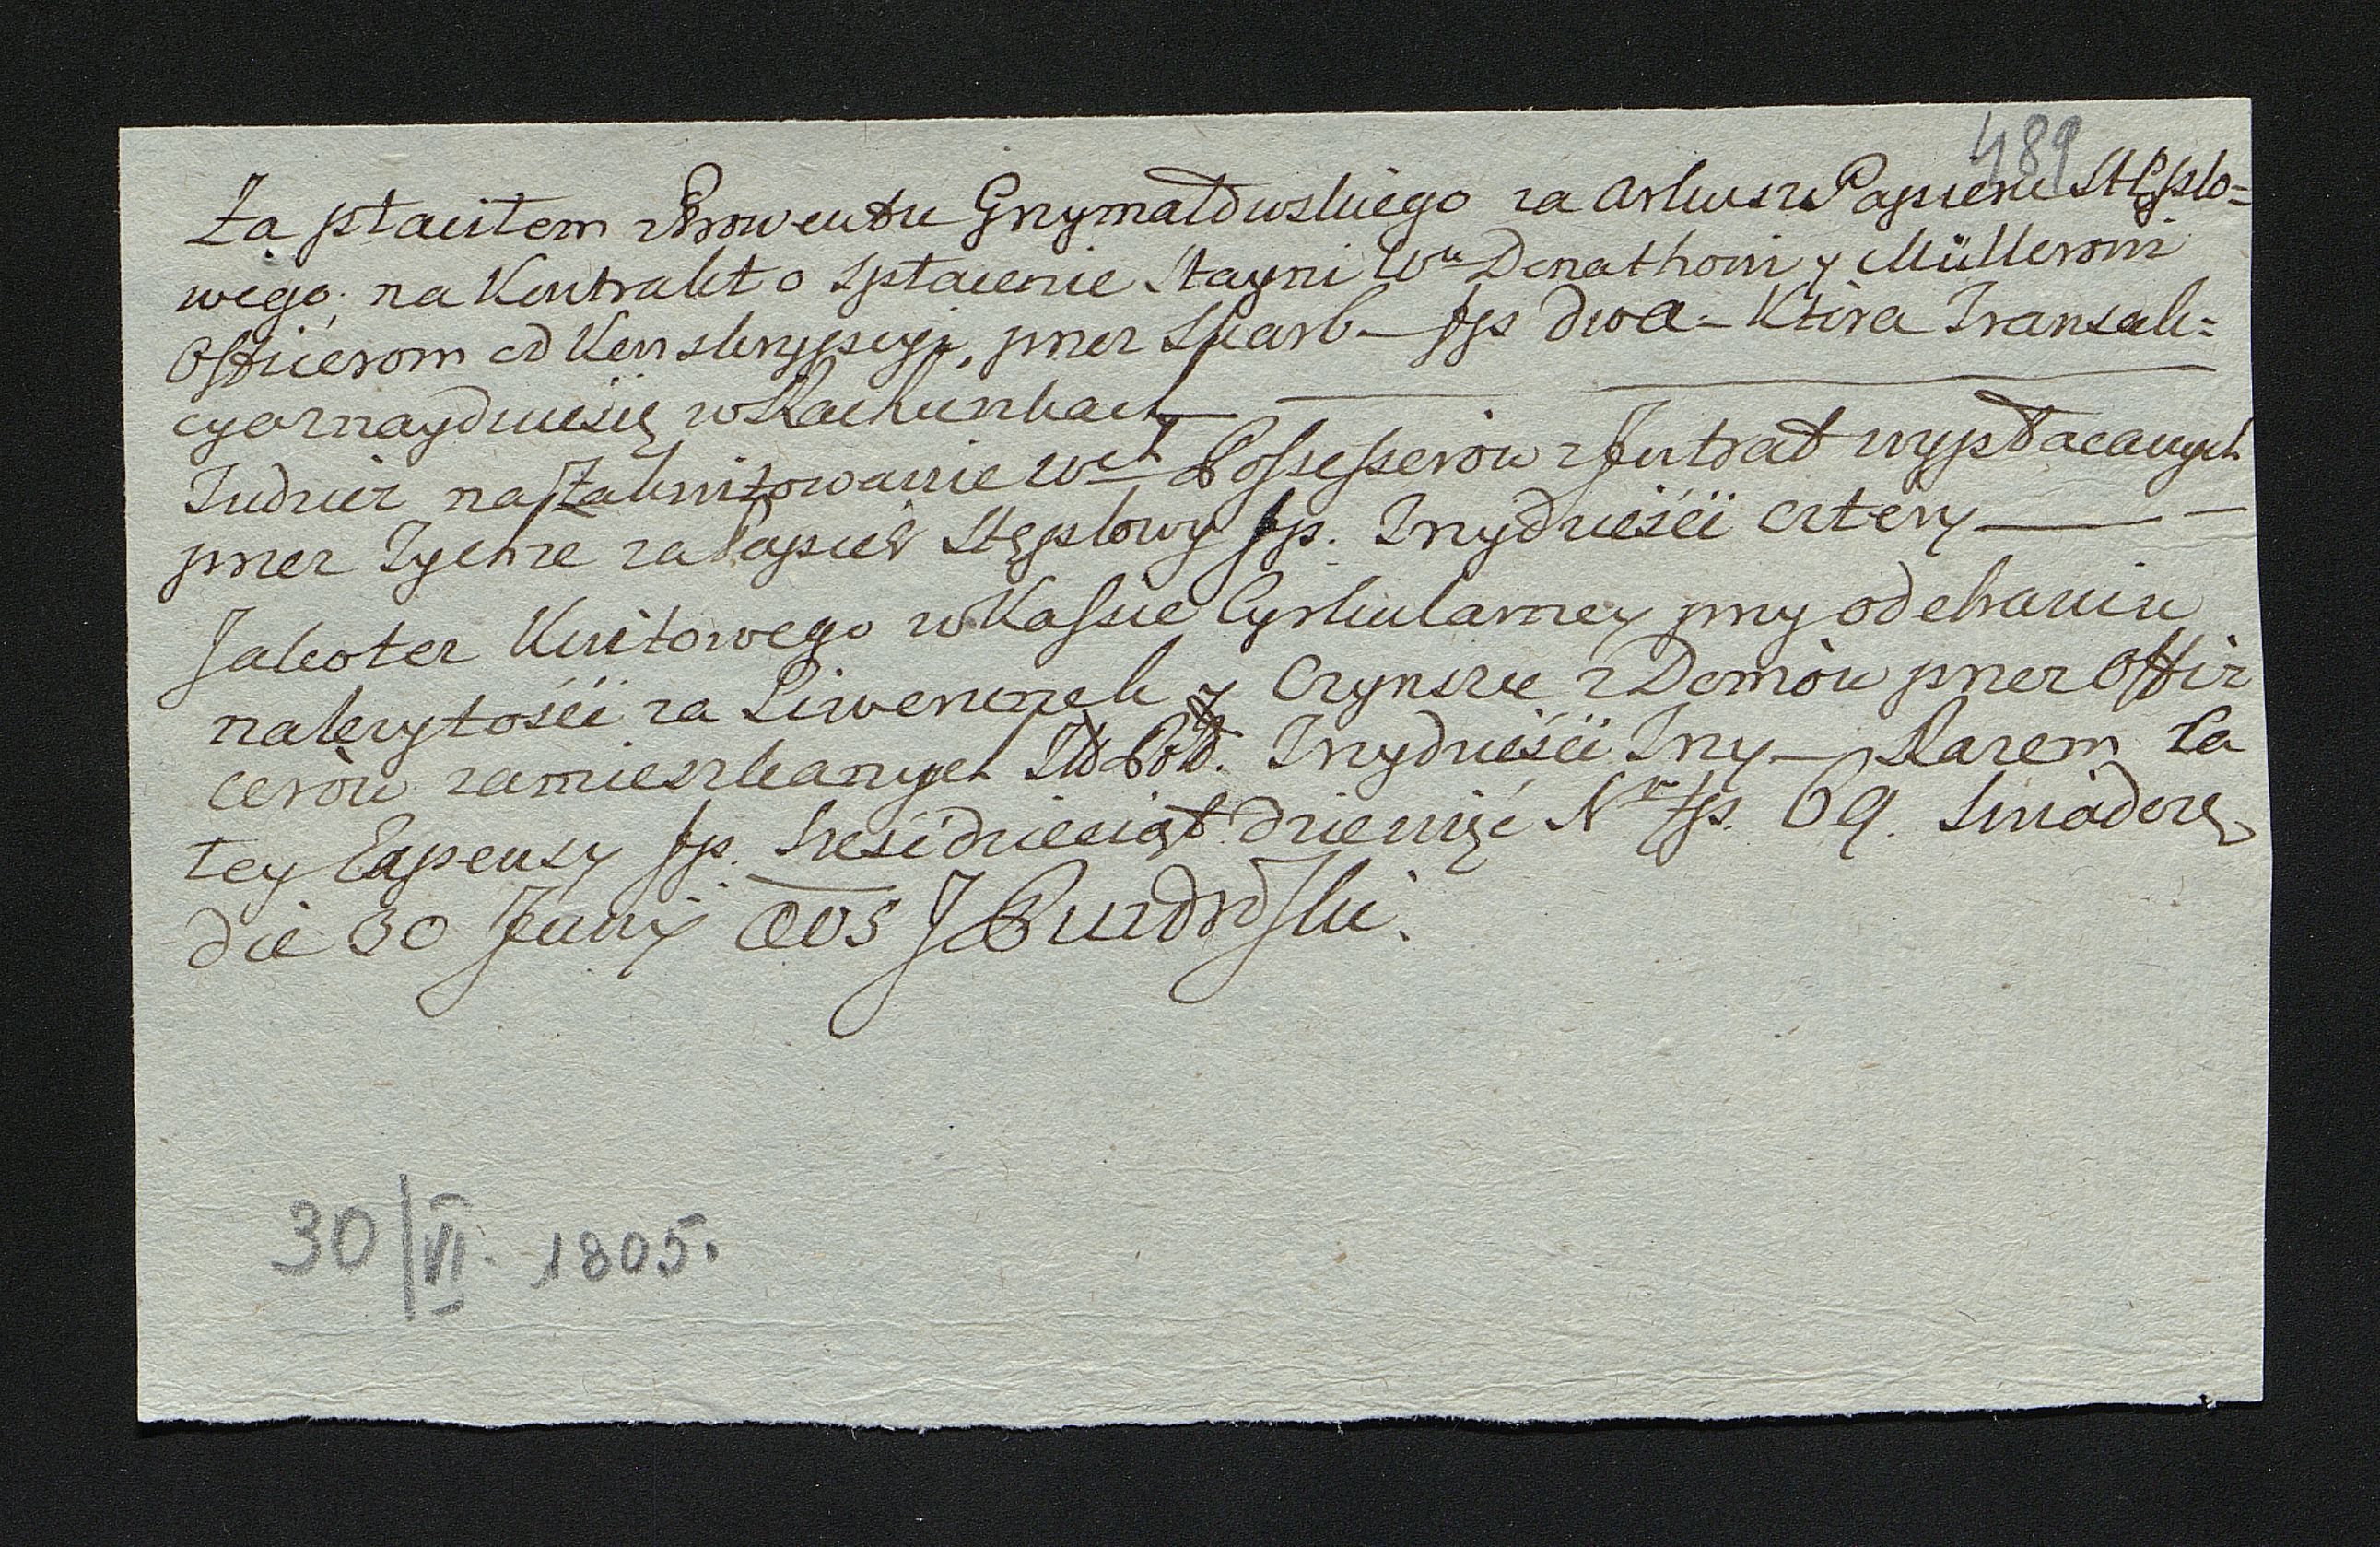 489
Zapłaciłem z Prowentu Grzymałowskiego za Arkusz Papieru Stęplo=
wego, na Kontrakt o zpłacenie Stayni W^u Donathowi y Müllerowi
Officerom od Konskrypcyi, przez Skarb – fp dwa – Ktora Transak=
cya znayduie się w Rachunkach
Tudziez na Zakwitowanie W^ch Possessorów z Intrat wypłacanych
przez Tychze za Papier Stęplowy fp. Trzydzieści cztery
Jakotez Kwitowego w Kassie Cyrkularney przy odebraniu
należytości za Liwerunek y Czynsze z Domów przez Offi
cerów zamieszkanych Trzydzieści Trzy – Razem Ta
tey Expensy fp. Sześćdziesiąt dziewięć N^ro fp. 69. Swiadczę
die 30 Junij 805 J
30/VI. 1805.